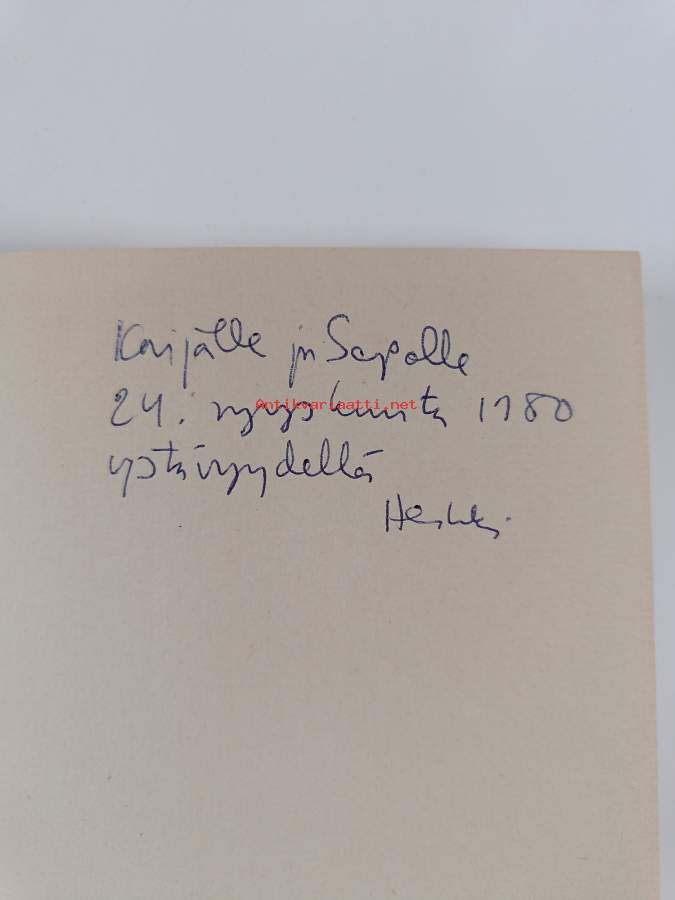 ja Sepolle
24. syyskuuta 1980
ystävyydellä
Heikki
Antikvariaatti.net